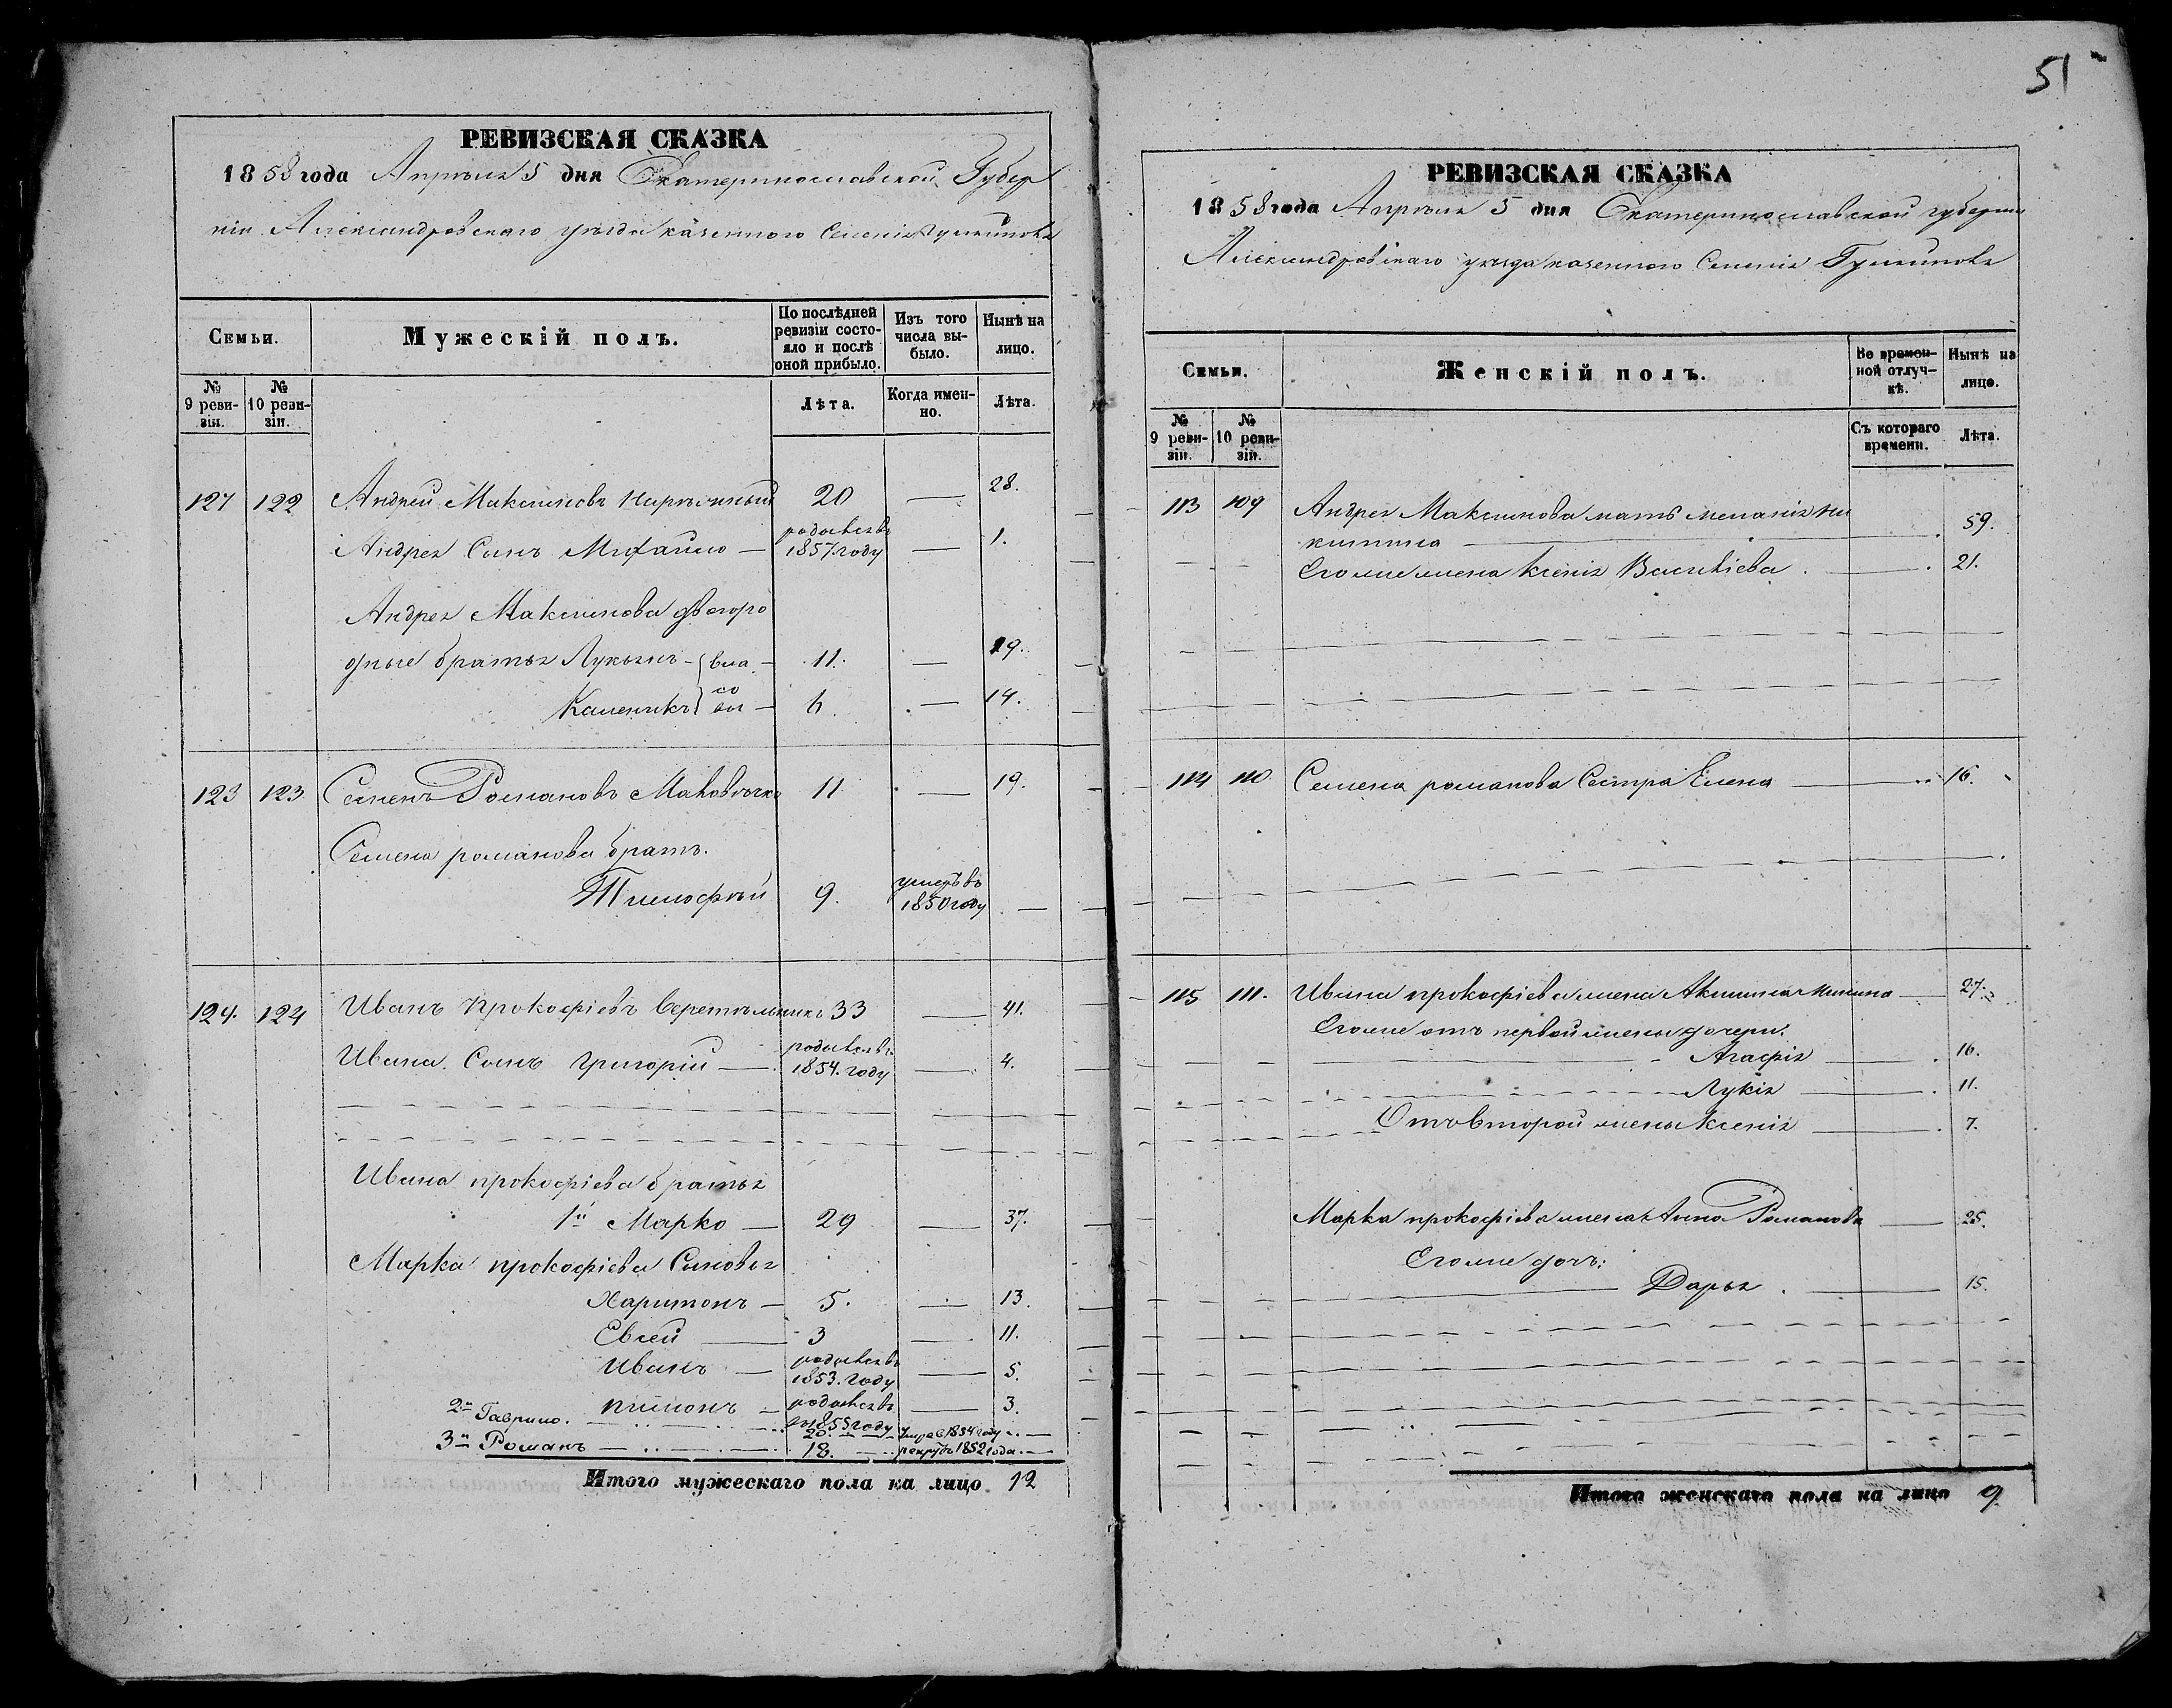 51
РЕВИЗСКАЯ СКАЗКА
1858 года Апреля 5 дня Екатеринославской Губер
ніи Александровскаго уѣзда казенного Селенія
Семьи.
Мужескій полъ.
По послѣдней ревизіи состояло и послѣ оной прибыло.
Изъ того числа выбыло.
Нынѣ на лицо.
№ 9 ревизіи.
№ 10 ревизіи.
Лѣта.
Когда именно.
Лѣта.
127 122 Андрей Максимовъ 20 — 28.
Андрея Сынъ Михайло — родился въ 1857. году — 1.
Андрея Максимова двоюро
дные братья Лукьянъ — 11. — 19.
Каленикъ — 6. — 14.
123 123 Семенъ Романовъ 11 — 19.
Семена романова братъ.
Тимофѣй 9. умеръ въ 1850 году —
124. 124 Иванъ Прокофіевъ Веретѣльникъ 33 — 41.
Ивана Сынъ Григорій — родился въ 1854. году — 4.
Ивана прокофіева братья
1й Марко — 29 — 37.
Марка прокофіева Сыновья
Харитонъ — 5. — 13.
Евсей — 3 — 11.
Иванъ — родился въ 1853. году — 5.
родился въ 1855 году — 3.
2й Гаврило. 20. 1854 году —
3й Романъ — 18. — 1852 года —
Итого мужескаго пола на лицо 12
РЕВИЗСКАЯ СКАЗКА
1858 года Апреля 5 дня Екатеринославской губерніи
Александровскаго уезда казенного Селенія
Семьи.
Женскій полъ.
Во временной отлучкѣ.
Нынѣ на лицо.
№ 9 ревизіи.
№ 10 ревизіи.
Съ котораго времени.
Лѣта.
113 109 Андрея Максимова мать меланія ни
китина — 59.
Егоже жена Ксенія Василіева — 21.
114 110 Семена романова Сестра Елена — 16.
115 111. Ивана прокофіева жена Акилина — 27.
Егоже отъ первой жены дочери.
Агафія — 16.
Лукія — 11.
Отъ второй жены Ксенія — 7.
Марка прокофіева жена Анна Романова — 25.
Егоже дочь:
Дарья — 15.
Итого женскаго пола на лицо 9